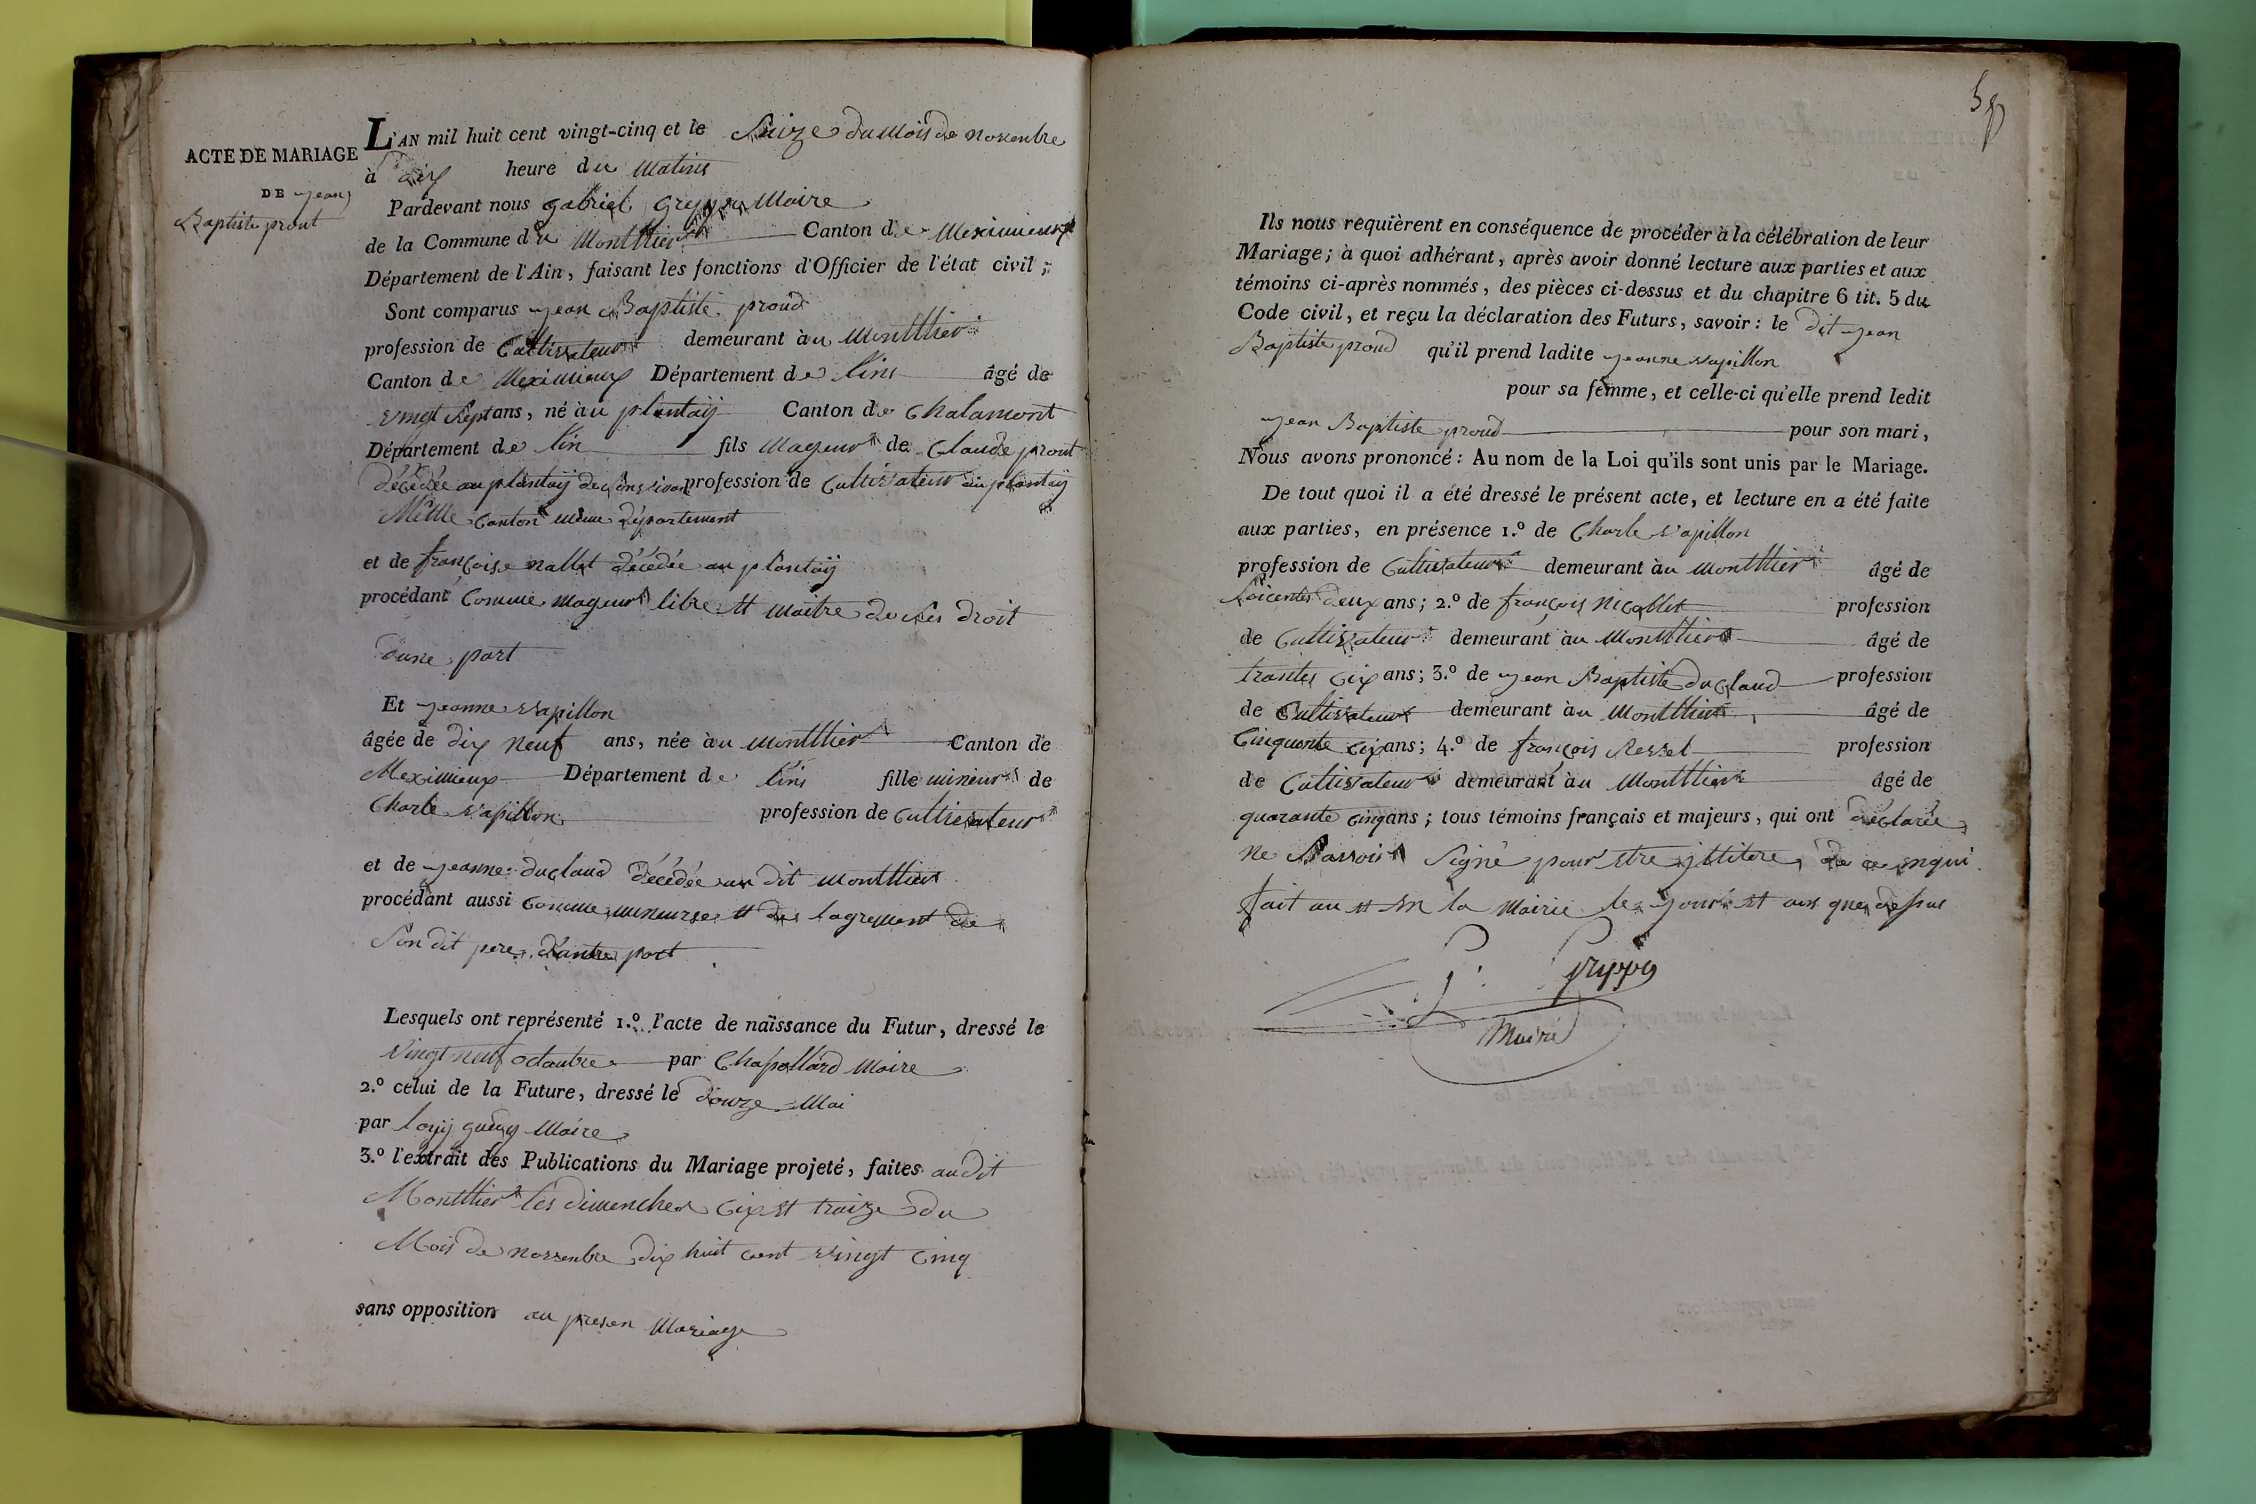 ACTE DE MARIAGE
DE jean
Baptiste prout
L'AN mil huit cent vingt-cinq et le Seize du mois de novenbre
à dix heure du matins
Pardevant nous gabriel greppo Maire
de la Commune du Montthier Canton de Meximieux
Département de l'Ain, faisant les fonctions d'Officier de l'état civil;
Sont comparus jean Baptiste proud
profession de Cultivateur demeurant àu Montthier
Canton de Meximieux Département de lins âgé de
vingt Sept ans, né àu plantaÿ Canton de Chalamont
Département de lin fils mageur de Claude prout
décédée au plantaÿ de profession de Cultivateur au plantaÿ
Même Canton même département
et de françoise nallet décédée au plantaÿ
procédant Comme mageur libre et maitre de ses droit
dune part
Et jeanne vapillon
âgée de dix neuf ans, née àu montthier Canton de
Meximieux Département de lins fille mineur de
Charle vapillon profession de Cultivateur
et de jeanne duclaud décédée au dit montthier
procédant aussi Comme mineurse et de lagrement de
Son dit pere dautre part
Lesquels ont représenté 1.º l'acte de naissance du Futur, dressé le
vingt neuf octoubre par Chapollard Maire
2.º celui de la Future, dressé le douze Mai
par Maire
3.º l'extrait des Publications du Mariage projeté, faites audit
Montthier les dimenches Cix et traize du
Mois de novenbre dix huit cent vingt Cinq
sans opposition au presen Mariage
Ils nous requièrent en conséquence de procéder à la célébration de leur
Mariage; à quoi adhérant, après avoir donné lecture aux parties et aux
témoins ci-après nommés, des pièces ci-dessus et du chapitre 6 tit. 5 du
Code civil, et reçu la déclaration des Futurs, savoir: le dit jean
Baptiste proud qu'il prend ladite jeanne vapillon
pour sa femme, et celle-ci qu'elle prend ledit
jean Baptiste proud pour son mari,
Nous avons prononcé: Au nom de la Loi qu'ils sont unis par le Mariage.
De tout quoi il a été dressé le présent acte, et lecture en a été faite
aux parties, en présence 1.º de Charle vapillon
profession de Cultivateur demeurant àu montthier âgé de
Soicentes deux ans; 2.º de françois nicollet profession
de Cultivateur demeurant àu Montthier âgé de
trantes Cix ans; 3.º de jean Baptiste duclaud profession
de Cultivateur demeurant àu Montthier âgé de
Cinquante Cix ans; 4.º de françois profession
de Cultivateur demeurant àu Montthier âgé de
quarante cinq ans; tous témoins français et majeurs, qui ont déclarée
ne Savoir Signé pour etre de ce enqui
fait au et En la Mairie le jour et ans que dessus
G. Greppo
Maire